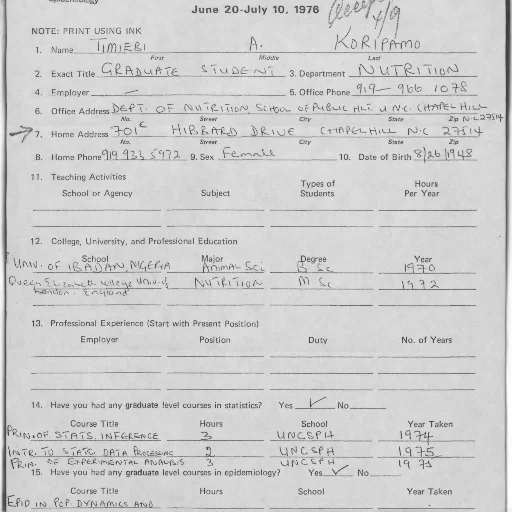 Epidemiology
June 20-July 10, 1976
4/9
NOTE: PRINT USING INK
1. Name TIMIEBI A. KORIPAMO
First Middle Last
2. Exact Title GRADUATE STUDENT 3. Department NUTRITION
4. Employer — 5. Office Phone 919-966 1078
6. Office Address DEPT. OF NUTRITION, SCHOOL OF PUBLIC HLT. UNC. CHAPEL HILL
No. Street City State Zip N.C 27514
7. Home Address 701C HIBBARD DRIVE CHAPEL HILL N.C 27514
No. Street City State Zip
8. Home Phone 919 933 5972 9. Sex Female 10. Date of Birth 8/26/1948
11. Teaching Activities
School or Agency Subject Types of Students Hours Per Year
12. College, University, and Professional Education
School Major Degree Year
UNIV. OF IBADAN, NIGERIA ANIMAL SCI B Sc 1970
Queen Elizabeth College Univ. of London, England NUTRITION M Sc 1972
13. Professional Experience (Start with Present Position)
Employer Position Duty No. of Years
14. Have you had any graduate level courses in statistics? Yes ✓ No
Course Title Hours School Year Taken
PRIN. OF STATS. INFERENCE 3 UNCSPH 1974
INTR. TO STATS. DATA PROCESSING 2 UNCSPH 1975
PRIN. OF EXPERIMENTAL ANALYSIS 3 UNCSPH 1975
15. Have you had any graduate level courses in epidemiology? Yes ✓ No
Course Title Hours School Year Taken
EPID IN POP. DYNAMICS AND